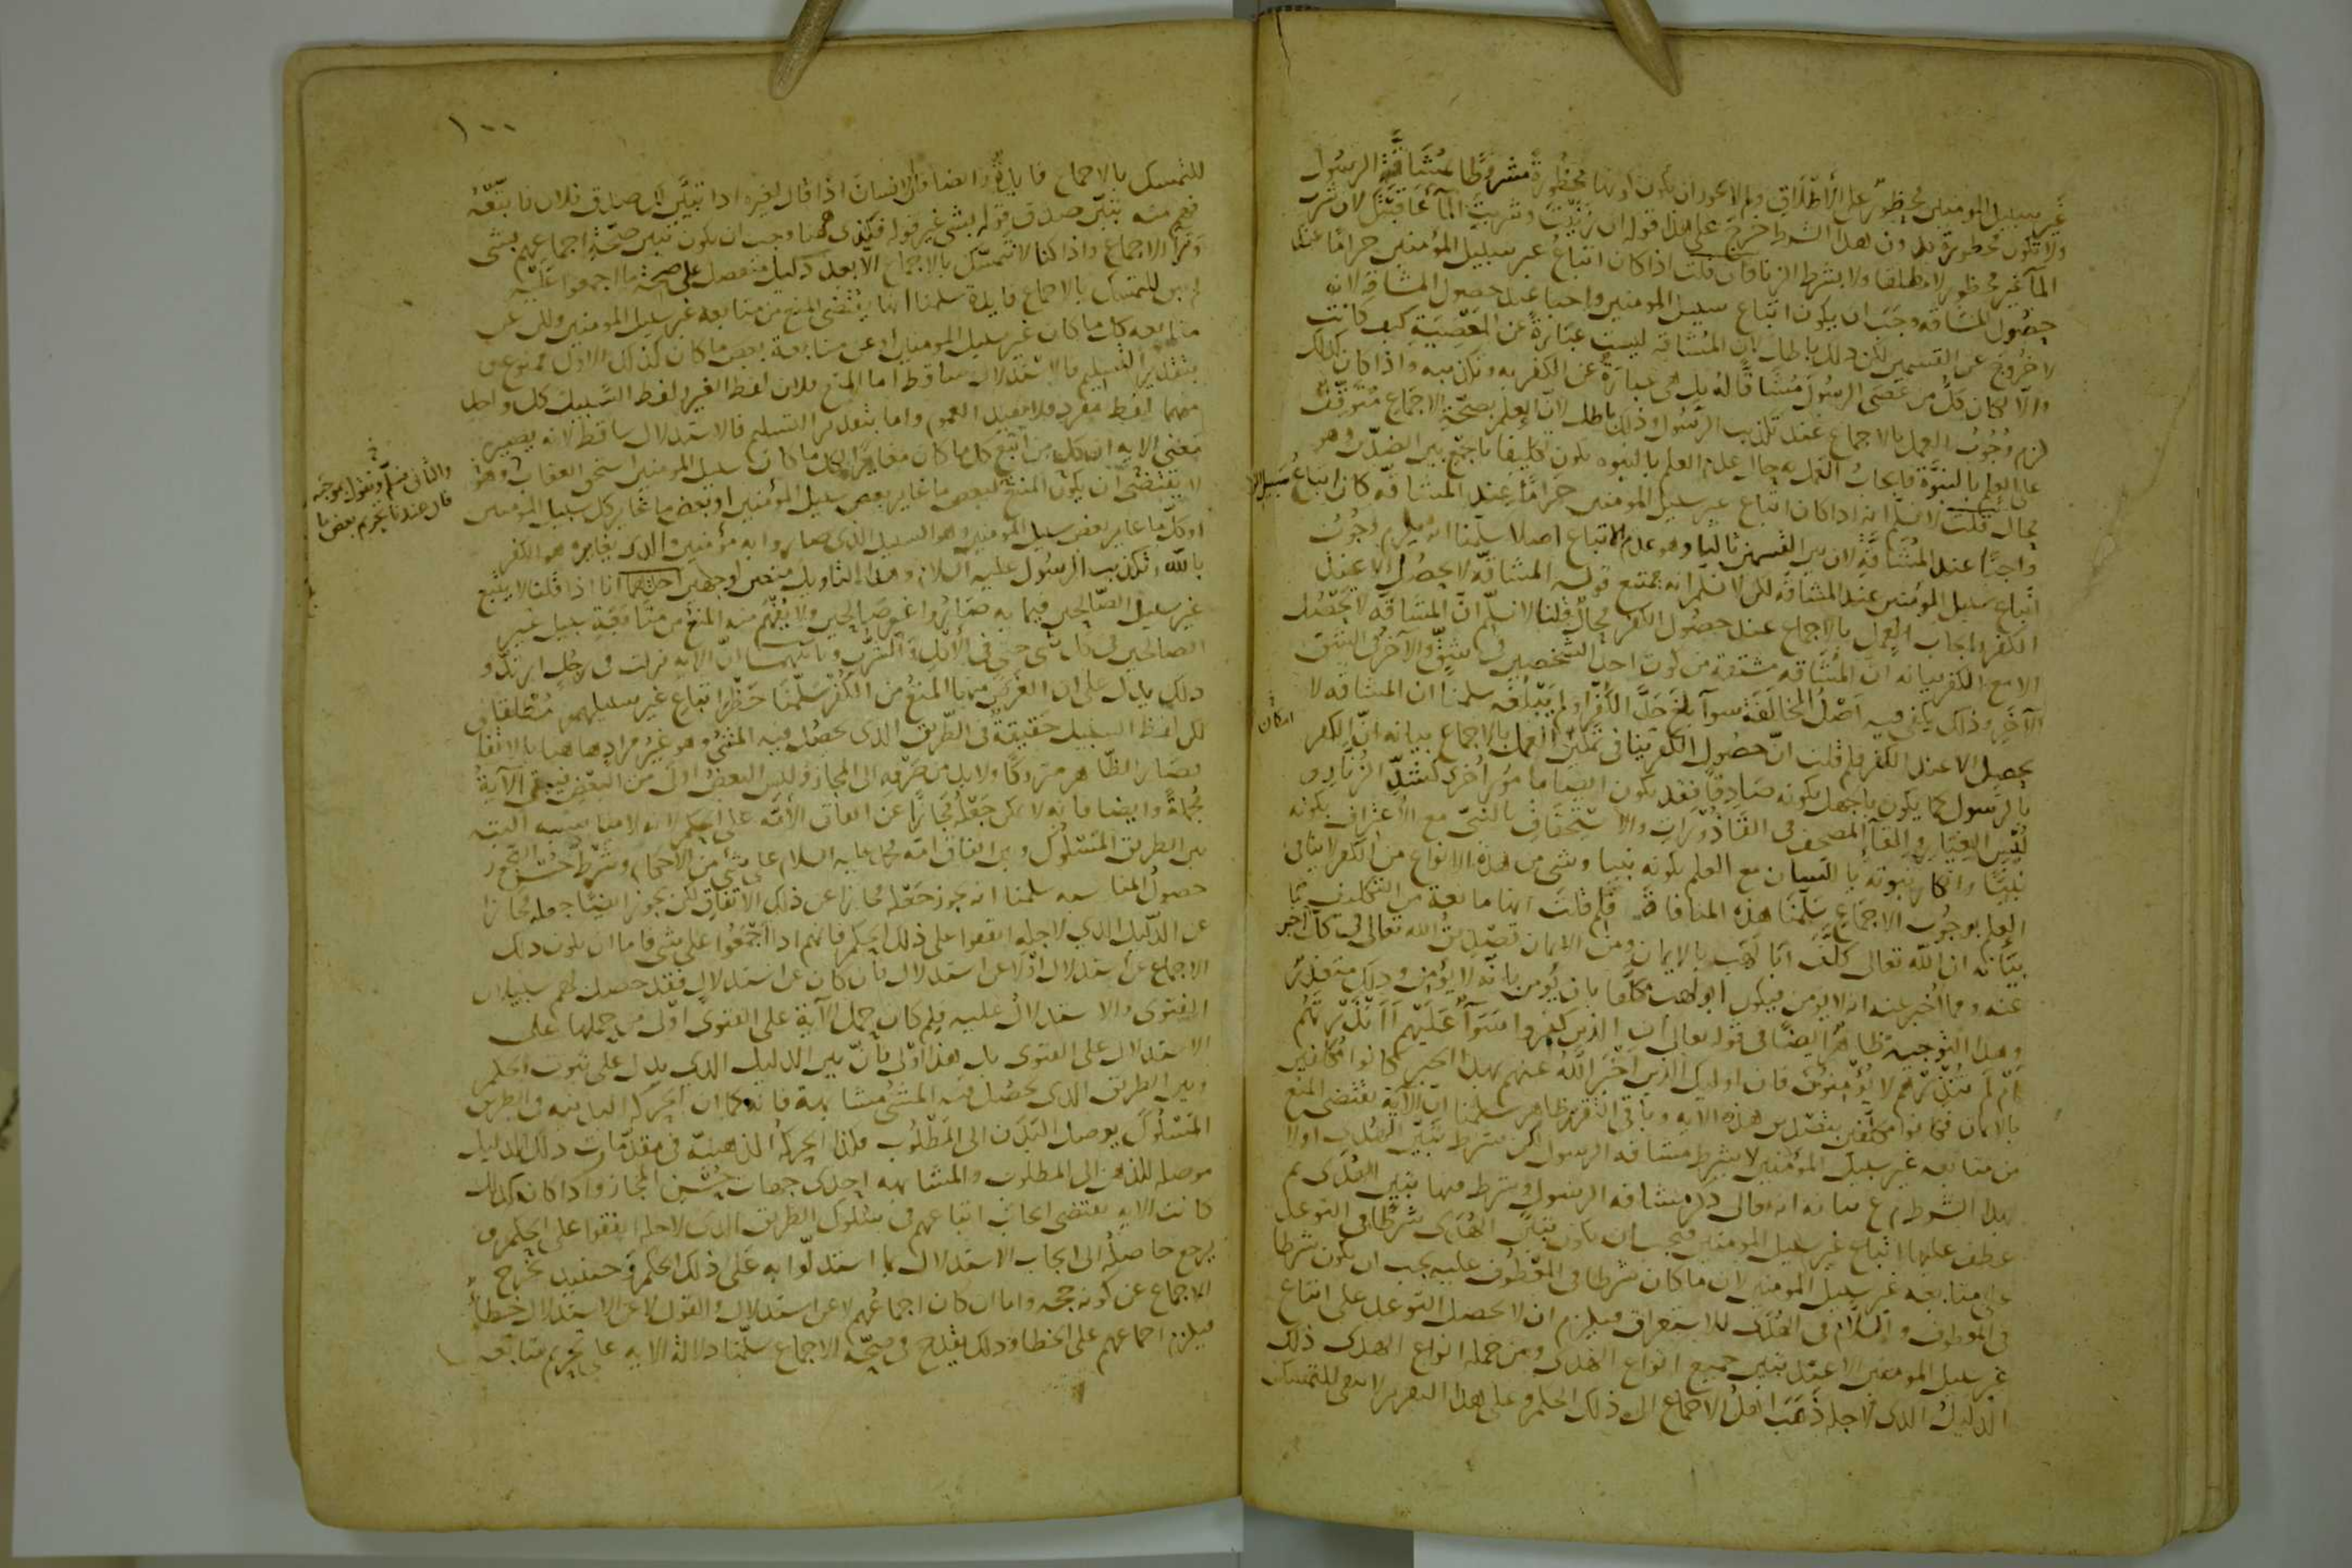 غير سبيل المومنين محظور على الاطلاق ولم لا يجوز ان يكون كونها محظورة مشروطا بمشاقة الرسول
ولا تكون محظورة بدون هذا الشرط خرج على هذا قوله ان زنيت وشربت الماء عاقبتك لان شرب
الماء غير محظور لا مطلقا ولا بشرط الزنا فان قلت اذا كان اتباع غير سبيل المؤمنين حراما عند
حصول المشاقه وجب ان يكون اتباع سبيل المومنين واجبا عند حصول المشاقه لانه
لا خروج عن القسمين لكن ذلك باطل لان المشاقه ليست عبارة عن المعصية كيف كانت
والا لكان كل من عصى الرسول مشاقا له بل هى عبارة عن الكفر به وتكذيبه واذا كان كذلك
لزم وجوب العمل بالاجماع عند تكذيب الرسول وذلك باطل لان العلم بصحة الاجماع متوقف
على العلم بالنبوة فايجاب العمل به حال عدم العلم بالنبوه يكون تكليفا بالجمع بين الضدين وهو
محال قلت لا نسلم انه اذا كان اتباع غير سبيل المومنين حراما عند المشاقه كان اتباع سبيل
واجبا عند المشاقة لان بين القسمين ثالثا وهو عدم الاتباع اصلا سلمنا انه يلزم وجوب
اتباع سبيل المومنين عند المشاقه لكن لا نسلم انه ممتنع قوله المشاقه لا يحصل الا عند
الكفر وايجاب العمل بالاجماع عند حصول الكفر محال قلنا لا نسلم ان المشاقه لا تحصل
الا مع الكفر بيانه ان المشاقه مشتقة من كون احد الشخصين في شق والآخر في الشق
الآخر وذلك يكفى فيه اصل المخالفة سوآ بلغ حد الكفر او لم يبلغه سلمنا ان المشاقه لا
يحصل الا عند الكفر فلم قلت ان حصول الكفر ينافى تمكين العمل بالاجماع بيانه ان الكفر
بالرسول كما يكون بالجهل بكونه صادقا فقد يكون ايضا بامور اخرى كشد الزنار و
لبس الغيار والقآ المصحف في القاذورات والاستخفاف بالنبى مع الاعتراف بكونه
نبيا وانكار نبوته باللسان مع العلم بكونه نبيا وشى من هذه الانواع من الكفر لا ينافى
العلم بوجوب الاجماع سلمنا هذه المنافاة فلم قلت انها مانعة من التكليف بها
بيانه ان الله تعالى كلف ابا لهب بالايمان ومن الايمان تصديق الله تعالى فى كل ما اخبر
عنه ومما اخبر عنه انه لا يؤمن فيكون ابو لهب مكلفا بان يؤمن بانه لا يؤمن وذلك متعذر
وهذا التوجيه ظاهر ايضا فى قوله تعالى ان الذين كفروا سوآ عليهم أأنذرتهم
ام لم تنذرهم لا يؤمنون فان اوليك الذين اخبر الله عنهم بهذا الخبر كانوا مكلفين
بالايمان فكانوا مكلفين بتصديق هذه الايه وباقى التقرير ظاهر سلمنا ان الآية تقتضى المنع
من متابعه غير سبيل المؤمنين لا بشرط مشاقه الرسول لكن بشرط تبين الهدى اولا
بهذا الشرط م ع بيانه انه تعالى ذكر مشاقه الرسول وشرط فيها تبين الهدى ثم
عطف عليها اتباع غير سبيل المومنين فيجب ان يكون تبين الهدى شرطا في التوعد
على متابعه غير سبيل المومنين لان ما كان شرطا فى المعطوف عليه يجب ان يكون شرطا
فى المعطوف واللام فى الهدى للاستغراق فيلزم ان لا يحصل التوعد على اتباع
غير سبيل المومنين الا عند تبين جميع انواع الهدى ومن جمله انواع الهدى ذلك
الدليل الذى لاجله ذهب اهل الاجماع الى ذلك الحكم وعلى هذا التقدير لا يبقى للتمسك
امكان
١٠٠
للتمسك بالاجماع فايدة وايضا فالانسان اذا قال لغيره اذا تبين لك صدق فلان فاتبعه
فهم منه تبين صدق قوله بشى غير قوله فكذى ههنا وجب ان يكون تبين صحة اجماعهم بشى
ورآ الاجماع واذا كنا لا نتمسك بالاجماع الا بعد دليل منفصل على صحة ما اجمعوا عليه
لم يبق للتمسك بالاجماع فايدة سلمنا انها يقتضى المنع من متابعه غير سبيل المومنين ولكن عن
متابعه كل ما كان غير سبيل المومنين او عن متابعة بعض ما كان كذلك الاول ممنوع و
بتقدير التسليم فالاستدلال ساقط اما المنع فلان لفظ الغير ولفظ السبيل كل واحد
منهما لفظ مفرد فلا يفيد العموم واما بتقدير التسليم فالاستدلال ساقط لانه يصير
معنى الايه ان كل من اتبع كل ما كان مغايرا لكل ما كان سبيل المومنين استحق العقاب وهو
لا يقتضى ان يكون المتبع لبعض ما غاير بعض سبيل المؤمنين او بعض ما غاير كل سبيل المومنين
او كل ما غاير بعض سبيل المومنين وهو السبيل الذى صاروا به مؤمنين والذى يغايره هو الكفر
بالله وتكذيب الرسول عليه السلام وهذا التاويل متعين لوجهين احدهما انا اذا قلنا لا تتبع
غير سبيل الصالحين فيما به صاروا غير صالحين ولا يفهم منه المنع من متابعة سبيل غير
الصالحين فى كل شى حتى فى الاكل والشرب وثانيهما ان الايه نزلت فى رجل ارتد و
ذلك يدل على ان الغرض منها المنع من الكفر سلمنا حظر اتباع غير سبيلهم مطلقا
لكن لفظ السبيل حقيقة فى الطريق الذى يحصل فيه المشى وهو غير مراد هاهنا بالاتفاق
فصار الظاهر متروكا ولا بد من صرفه الى المجاز وليس البعض اولى من البعض فيبقى الآية
مجملة وايضا فانه لا يمكن جعله مجازا عن اتفاق الامه على الحكم لانه لا مناسبه البته
بين الطريق المسلوك وبين اتفاق امه محمد عليه السلام على شى من الاحكام وشرط حسن التجوز
حصول المناسبه سلمنا انه يجوز جعله مجازا عن ذلك الاتفاق لكن يجوز ايضا جعله مجازا
عن الدليل الذى لاجله اتفقوا على ذلك الحكم فانهم اذا اجمعوا على شى فاما ان يكون ذلك
الاجماع عن استدلال او لا عن استدلال فان كان عن استدلال فقد حصل لهم سبيلان
الفتوى والاستدلال عليه فلم كان حمل الآية على الفتوى اولى من حملها على
الاستدلال على الفتوى بل هذا اولى فان بين الدليل الذى يدل على ثبوت الحكم
وبين الطريق الذى يحصل فيه المشى مشابهة فانه كما ان الحركه البدنيه فى الطريق
المسلوك يوصل البدن الى المطلوب فكذا الحركة الذهنية فى مقدمات ذلك الدليل
موصله للذهن الى المطلوب والمشابهه احدى جهات حسن المجاز واذا كان كذلك
كانت الايه تقتضى ايجاب اتباعهم فى سلوك الطريق الذى لاجله اتفقوا على الحكم و
يرجع حاصله الى ايجاب الاستدلال بما استدلوا به على ذلك الحكم وحينيذ يخرج
الاجماع عن كونه حجه واما ان كان اجماعهم لا عن استدلال والقول لا عن الاستدلال خطا
فيلزم اجماعهم على الخطا وذلك يقدح فى صحة الاجماع سلمنا دلالة الايه على تحريم متابعه
والثانى نسلم ونقول بموجبه
فان عندنا يحرم بعض ما